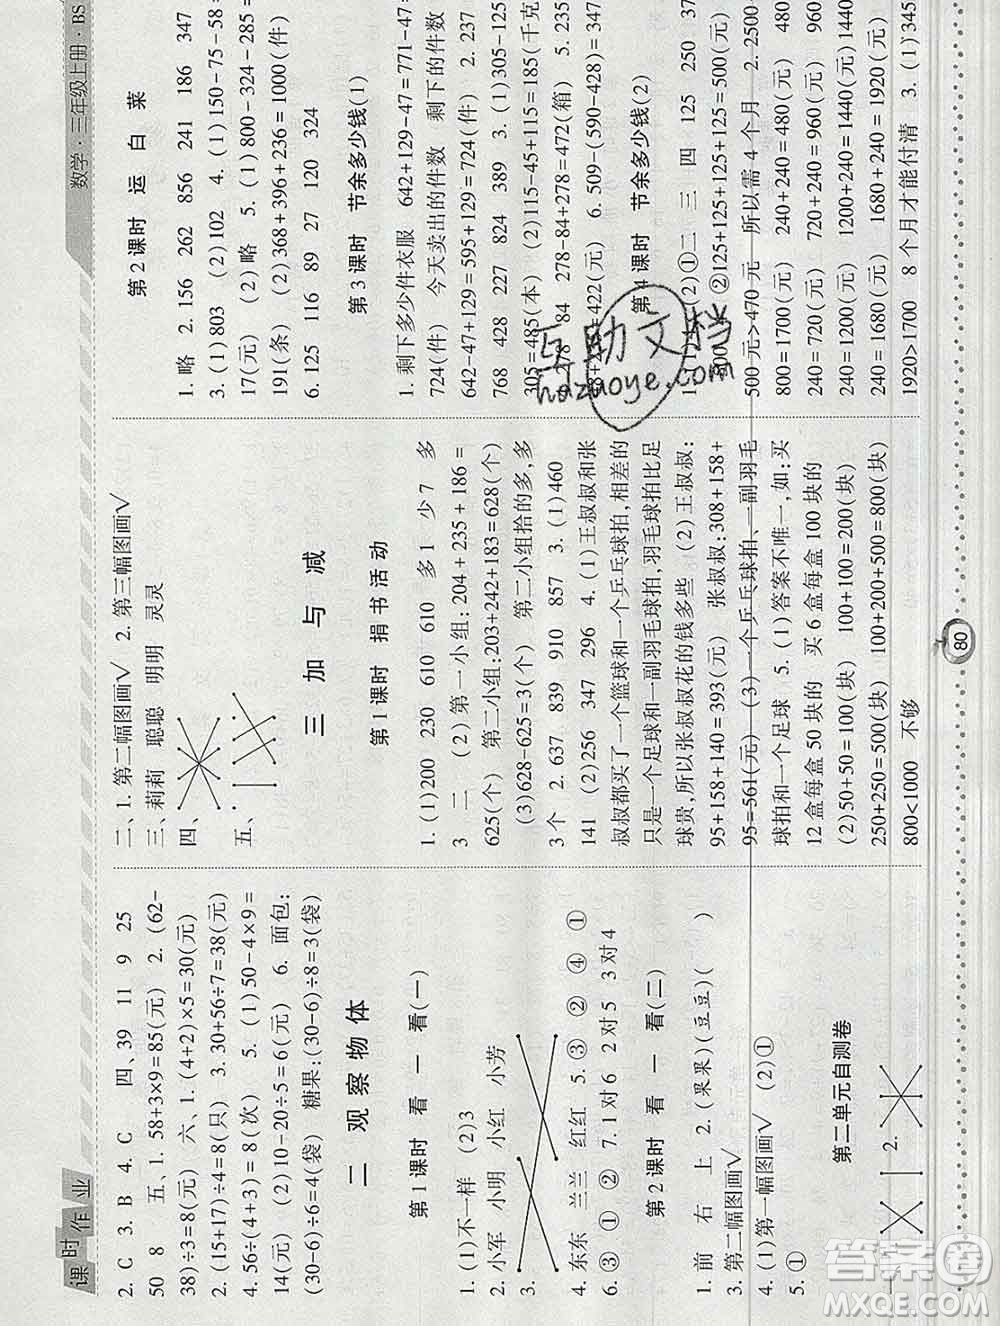 课时作业
数学·三年级上册·BS
2. C 3. B 4. C 四、39 11 9 25
50 8 五、1. 58+3×9=85(元) 2. (62-
38)÷3=8(元) 六、1. (4+2)×5=30(元)
2. (15+17)÷4=8(只) 3. 30+56÷7=38(元)
4. 56÷(4+3)=8(次) 5. (1)50-4×9=
14(元) (2)10-20÷5=6(元) 6. 面包:
(30-6)÷6=4(袋) 糖果:(30-6)÷8=3(袋)
二 观察物体
第1课时 看一看(一)
1. (1)不一样 (2)3
2. 小军 小明 小红 小芳
3.
4. 东东 兰兰 红红 5. ③ ② ④ ①
6. ③ ① ② 7. 1对6 2对5 3对4
第2课时 看一看(二)
1. 前 右 上 2. (果果)(豆豆)( )
3. 第二幅图画√
4. (1)第一幅图画√ (2)①
5. ①
第二单元自测卷
一、1. 2.
二、1. 第二幅图画√ 2. 第三幅图画√
三、莉莉 聪聪 明明 灵灵
四、
五、
三 加与减
第1课时 捐书活动
1. (1)200 230 610 610 多1 少7 多
3 二 (2)第一小组:204+235+186=
625(个) 第二小组:203+242+183=628(个)
(3)628-625=3(个) 第二小组拾的多,多
3个 2. 637 839 910 857 3. (1)460
141 (2)256 347 296 4. (1)王叔叔和张
叔叔都买了一个篮球和一个乒乓球拍,相差的
只是一个足球和一副羽毛球拍,羽毛球拍比足
球贵,所以张叔叔花的钱多些 (2)王叔叔:
95+158+140=393(元) 张叔叔:308+158+
95=561(元) (3)一个乒乓球拍、一副羽毛
球拍和一个足球 5. (1)答案不唯一,如:买
12盒每盒50块的 买6盒每盒100块的
(2)50+50=100(块) 100+100=200(块)
250+250=500(块) 100+200+500=800(块)
800<1000 不够
第2课时 运白菜
1. 略 2. 156 262 856 241 186 347
3. (1)803 (2)102 4. (1)150-75-58=
17(元) (2)略 5. (1)800-324-285=
191(条) (2)368+396+236=1000(件)
6. 125 116 89 27 120 324
第3课时 节余多少钱(1)
1. 剩下多少件衣服 642+129-47=771-47=
724(件) 今天卖出的件数 剩下的件数
642-47+129=595+129=724(件) 2. 237
768 428 227 824 389 3. (1)305-125
305=485(本) (2)115-45+115=185(千克
278 84 278-84+278=472(箱) 5. 235
8+ =422(元) 6. 509-(590-428)=347
第4课时 节余多少钱(2)
1. (2)①二 三 四 125 250 37
500 ②125+125+125+125=500(元)
500元>470元 所以需4个月 2. 2500-
800=1700(元) 240+240=480(元) 480
240=720(元) 720+240=960(元) 960
240=1200(元) 1200+240=1440(元)1440
240=1680(元) 1680+240=1920(元)
1920>1700 8个月才能付清 3. (1)345
80
互助文档
hazuoye.com
答案圈
MXQE.COM